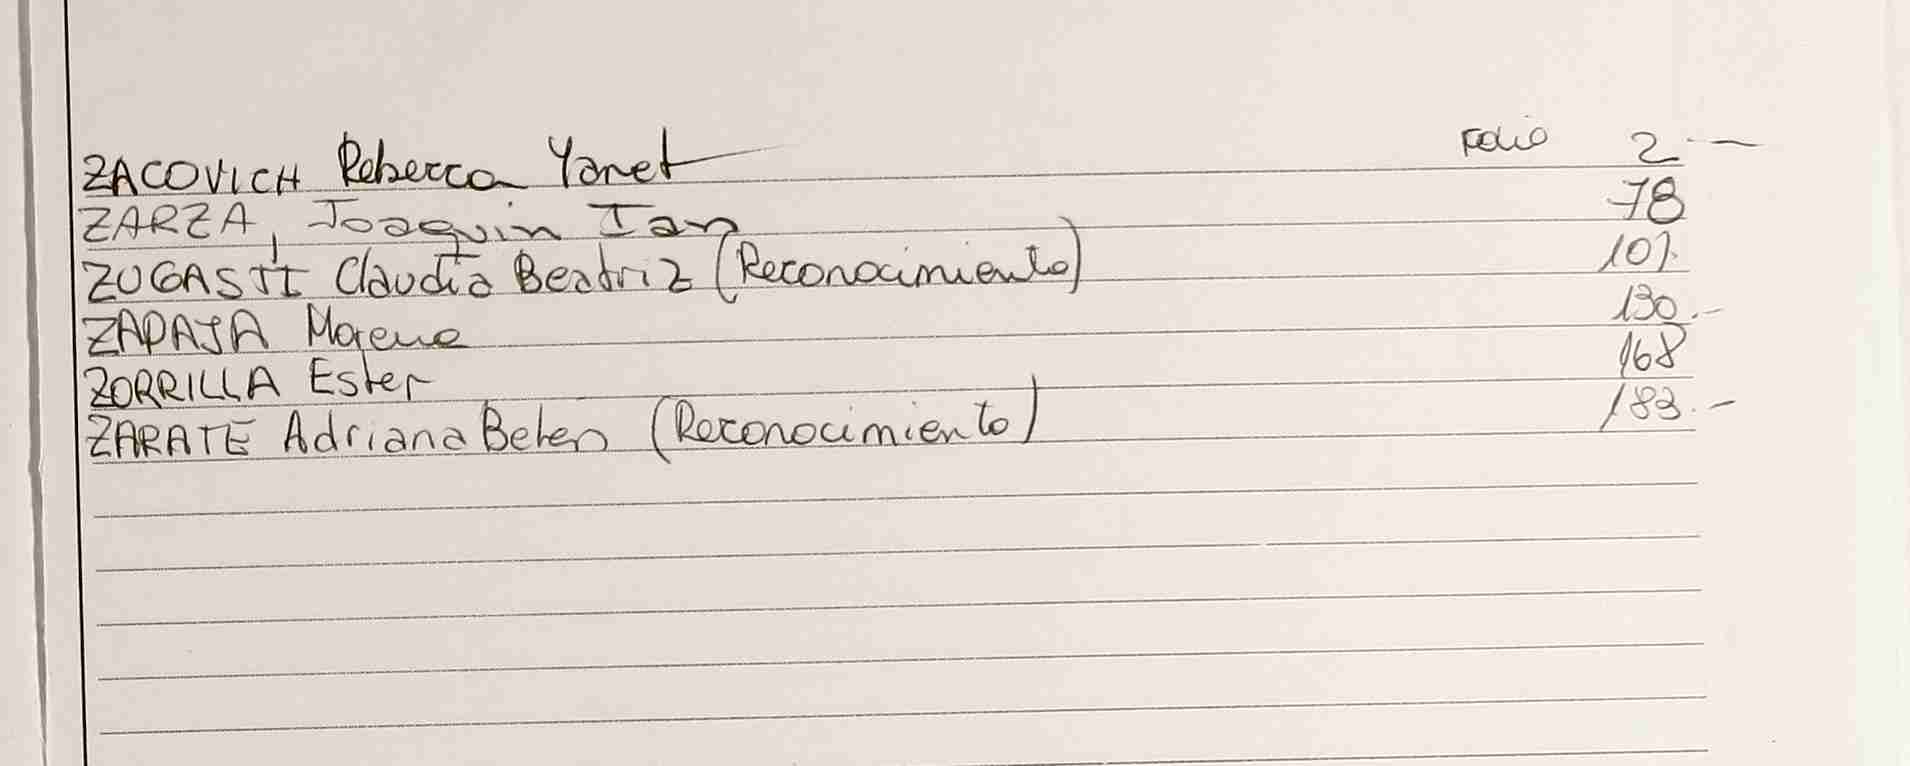 ZACOVICH Rebecca Yanet Folio 2.—
ZARZA, Joaquin Ian 78
ZUGASTI Claudia Beatriz (Reconocimiento) 101.
ZAPATA Morena 130.-
ZORRILLA Ester 168
ZARATE Adriana Belen (Reconocimiento) 183.-